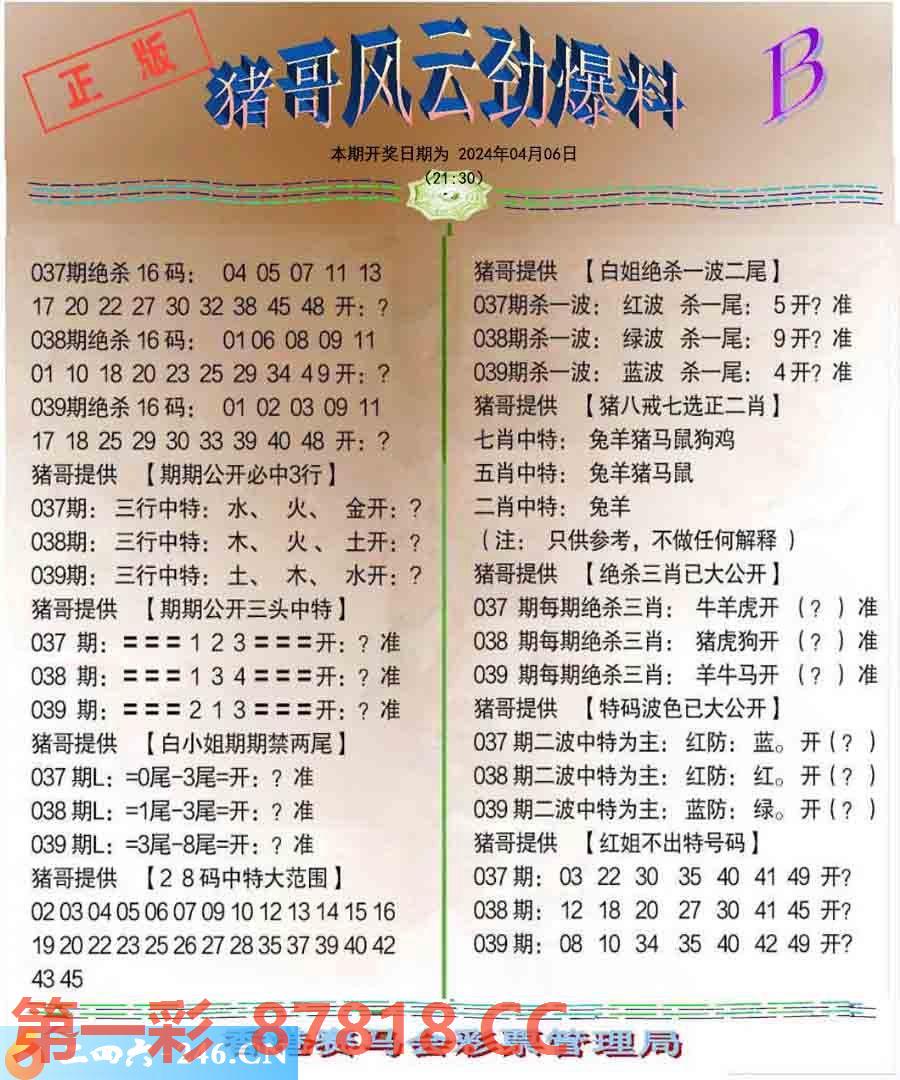 正版
猪哥风云劲爆料
B
本期开奖日期为 2024年04月06日
(21:30)
037期绝杀16码： 04 05 07 11 13
17 20 22 27 30 32 38 45 48 开：?
038期绝杀16码： 01 06 08 09 11
01 10 18 20 23 25 29 34 49开：?
039期绝杀16码： 01 02 03 09 11
17 18 25 29 30 33 39 40 48 开：?
猪哥提供 【期期公开必中3行】
037期：三行中特：水、 火、 金开：?
038期：三行中特：木、 火、 土开：?
039期：三行中特：土、 木、 水开：?
猪哥提供 【期期公开三头中特】
037 期：===1 2 3===开：? 准
038 期：===1 3 4===开：? 准
039 期：===2 1 3===开：? 准
猪哥提供 【白小姐期期禁两尾】
037期L：=0尾-3尾=开：? 准
038期L：=1尾-3尾=开：? 准
039期L：=3尾-8尾=开：? 准
猪哥提供 【28码中特大范围】
02 03 04 05 06 07 09 10 12 13 14 15 16
19 20 22 23 25 26 27 28 35 37 39 40 42
43 45
猪哥提供 【白姐绝杀一波二尾】
037期杀一波： 红波 杀一尾： 5开? 准
038期杀一波： 绿波 杀一尾： 9开? 准
039期杀一波： 蓝波 杀一尾： 4开? 准
猪哥提供 【猪八戒七选正二肖】
七肖中特： 兔羊猪马鼠狗鸡
五肖中特： 兔羊猪马鼠
二肖中特： 兔羊
（注： 只供参考，不做任何解释）
猪哥提供 【绝杀三肖已大公开】
037 期每期绝杀三肖： 牛羊虎开 （?）准
038 期每期绝杀三肖： 猪虎狗开 （?）准
039 期每期绝杀三肖： 羊牛马开 （?）准
猪哥提供 【特码波色已大公开】
037期二波中特为主：红防：蓝。开(?)
038期二波中特为主：红防：红。开(?)
039期二波中特为主：蓝防：绿。开(?)
猪哥提供 【红姐不出特号码】
037期：03 22 30 35 40 41 49 开?
038期：12 18 20 27 30 41 45 开?
039期：08 10 34 35 40 42 49 开?
第一彩 87818.CC
二四六 246.CN
香港赛马会彩票管理局